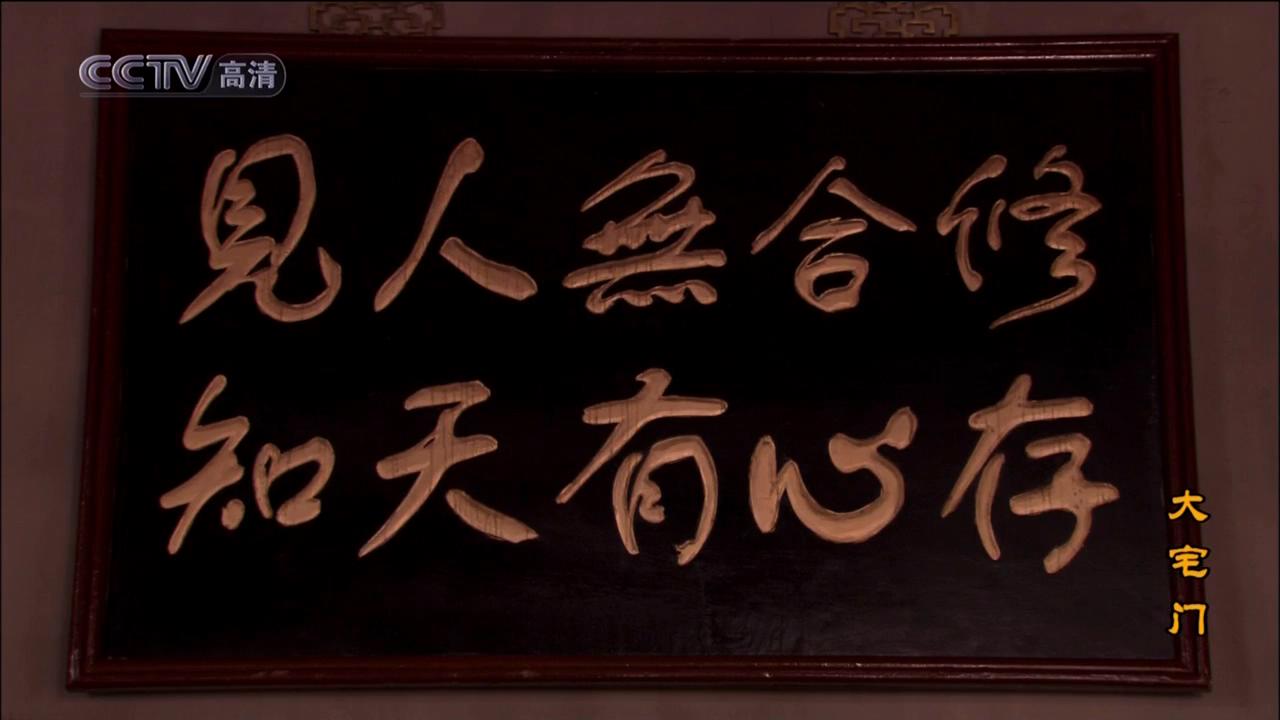 CCTV高清
修合無人見
存心有天知
大宅门